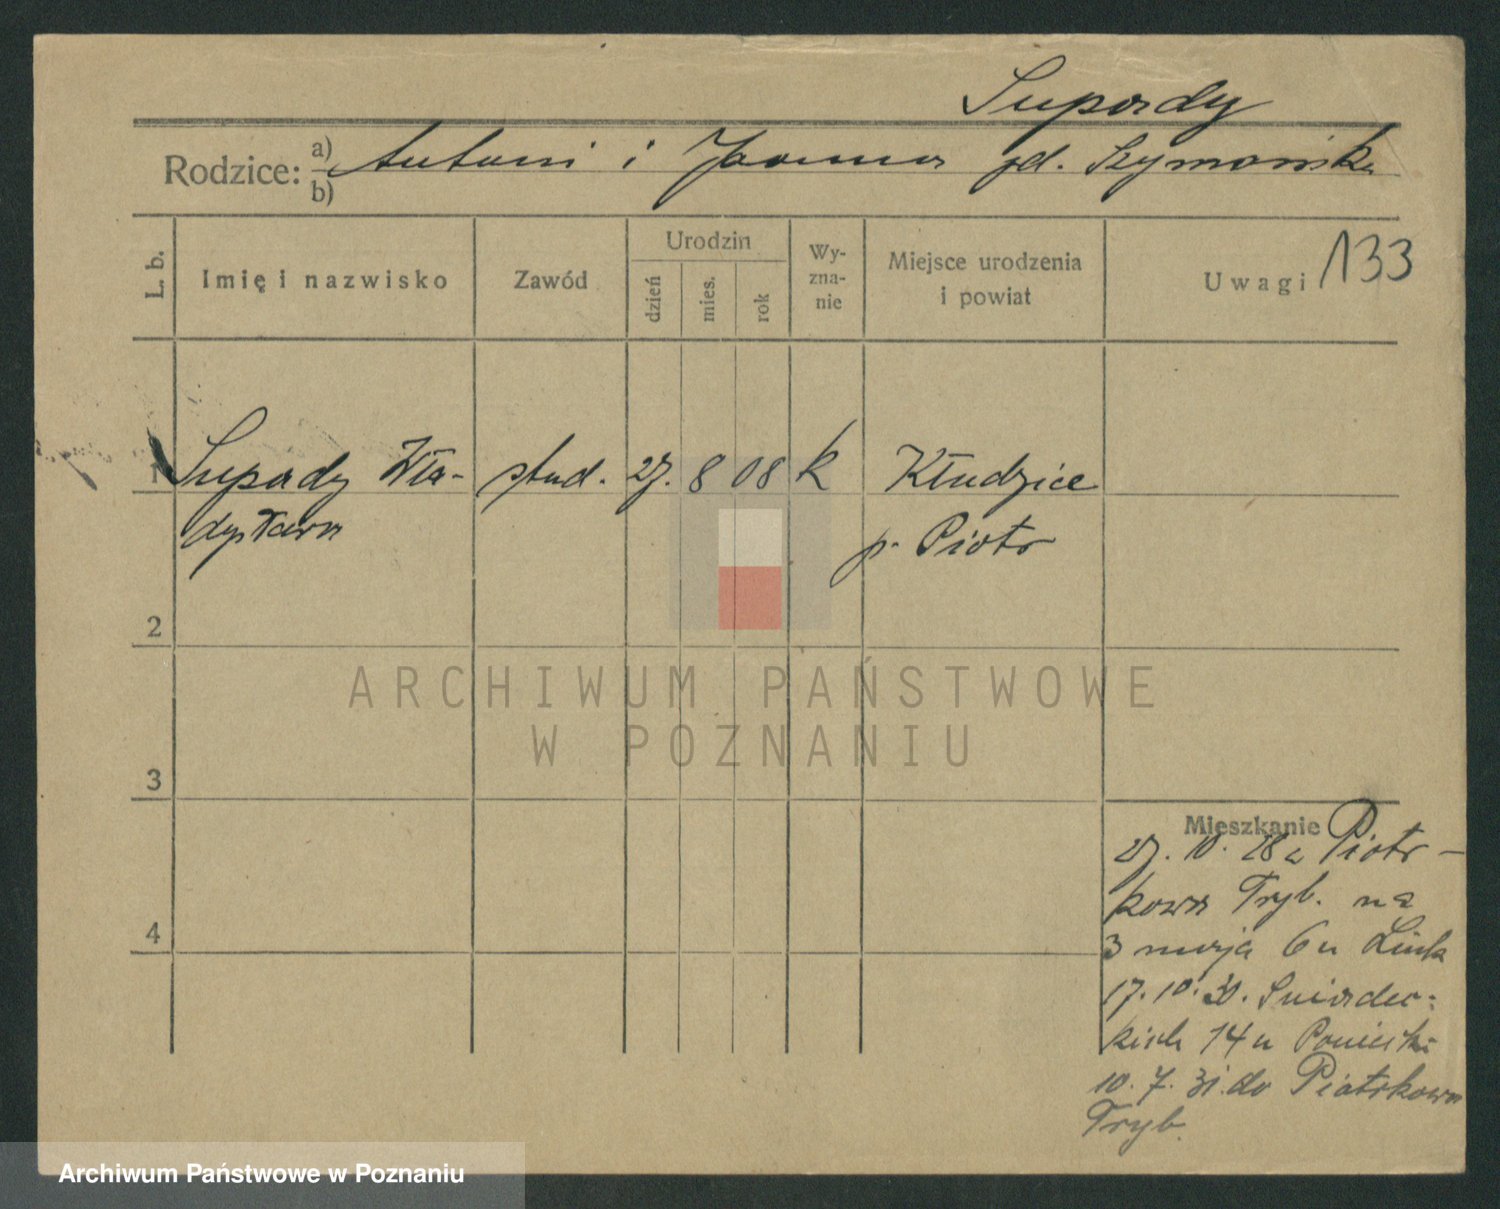 Supady
Rodzice: a) b) Antoni i Joanna zd. Szymańska
L. b.
Imię i nazwisko
Zawód
Urodzin
dzień
mies.
rok
Wy-
zna-
nie
Miejsce urodzenia
i powiat
Uwagi
133
1 Supady Wła- stud. 27. 8 08 k Kłudzice
dysława p. Piotr
2
3
4
Mieszkanie
27. 10. 28 z Piotr-
kowa Tryb. na
3 maja 6 u Link
17. 10. 30. Sniadec-
kich 14 u
10. 7. 31. do Piotrkowa
Tryb.
ARCHIWUM PAŃSTWOWE
W POZNANIU
Archiwum Państwowe w Poznaniu